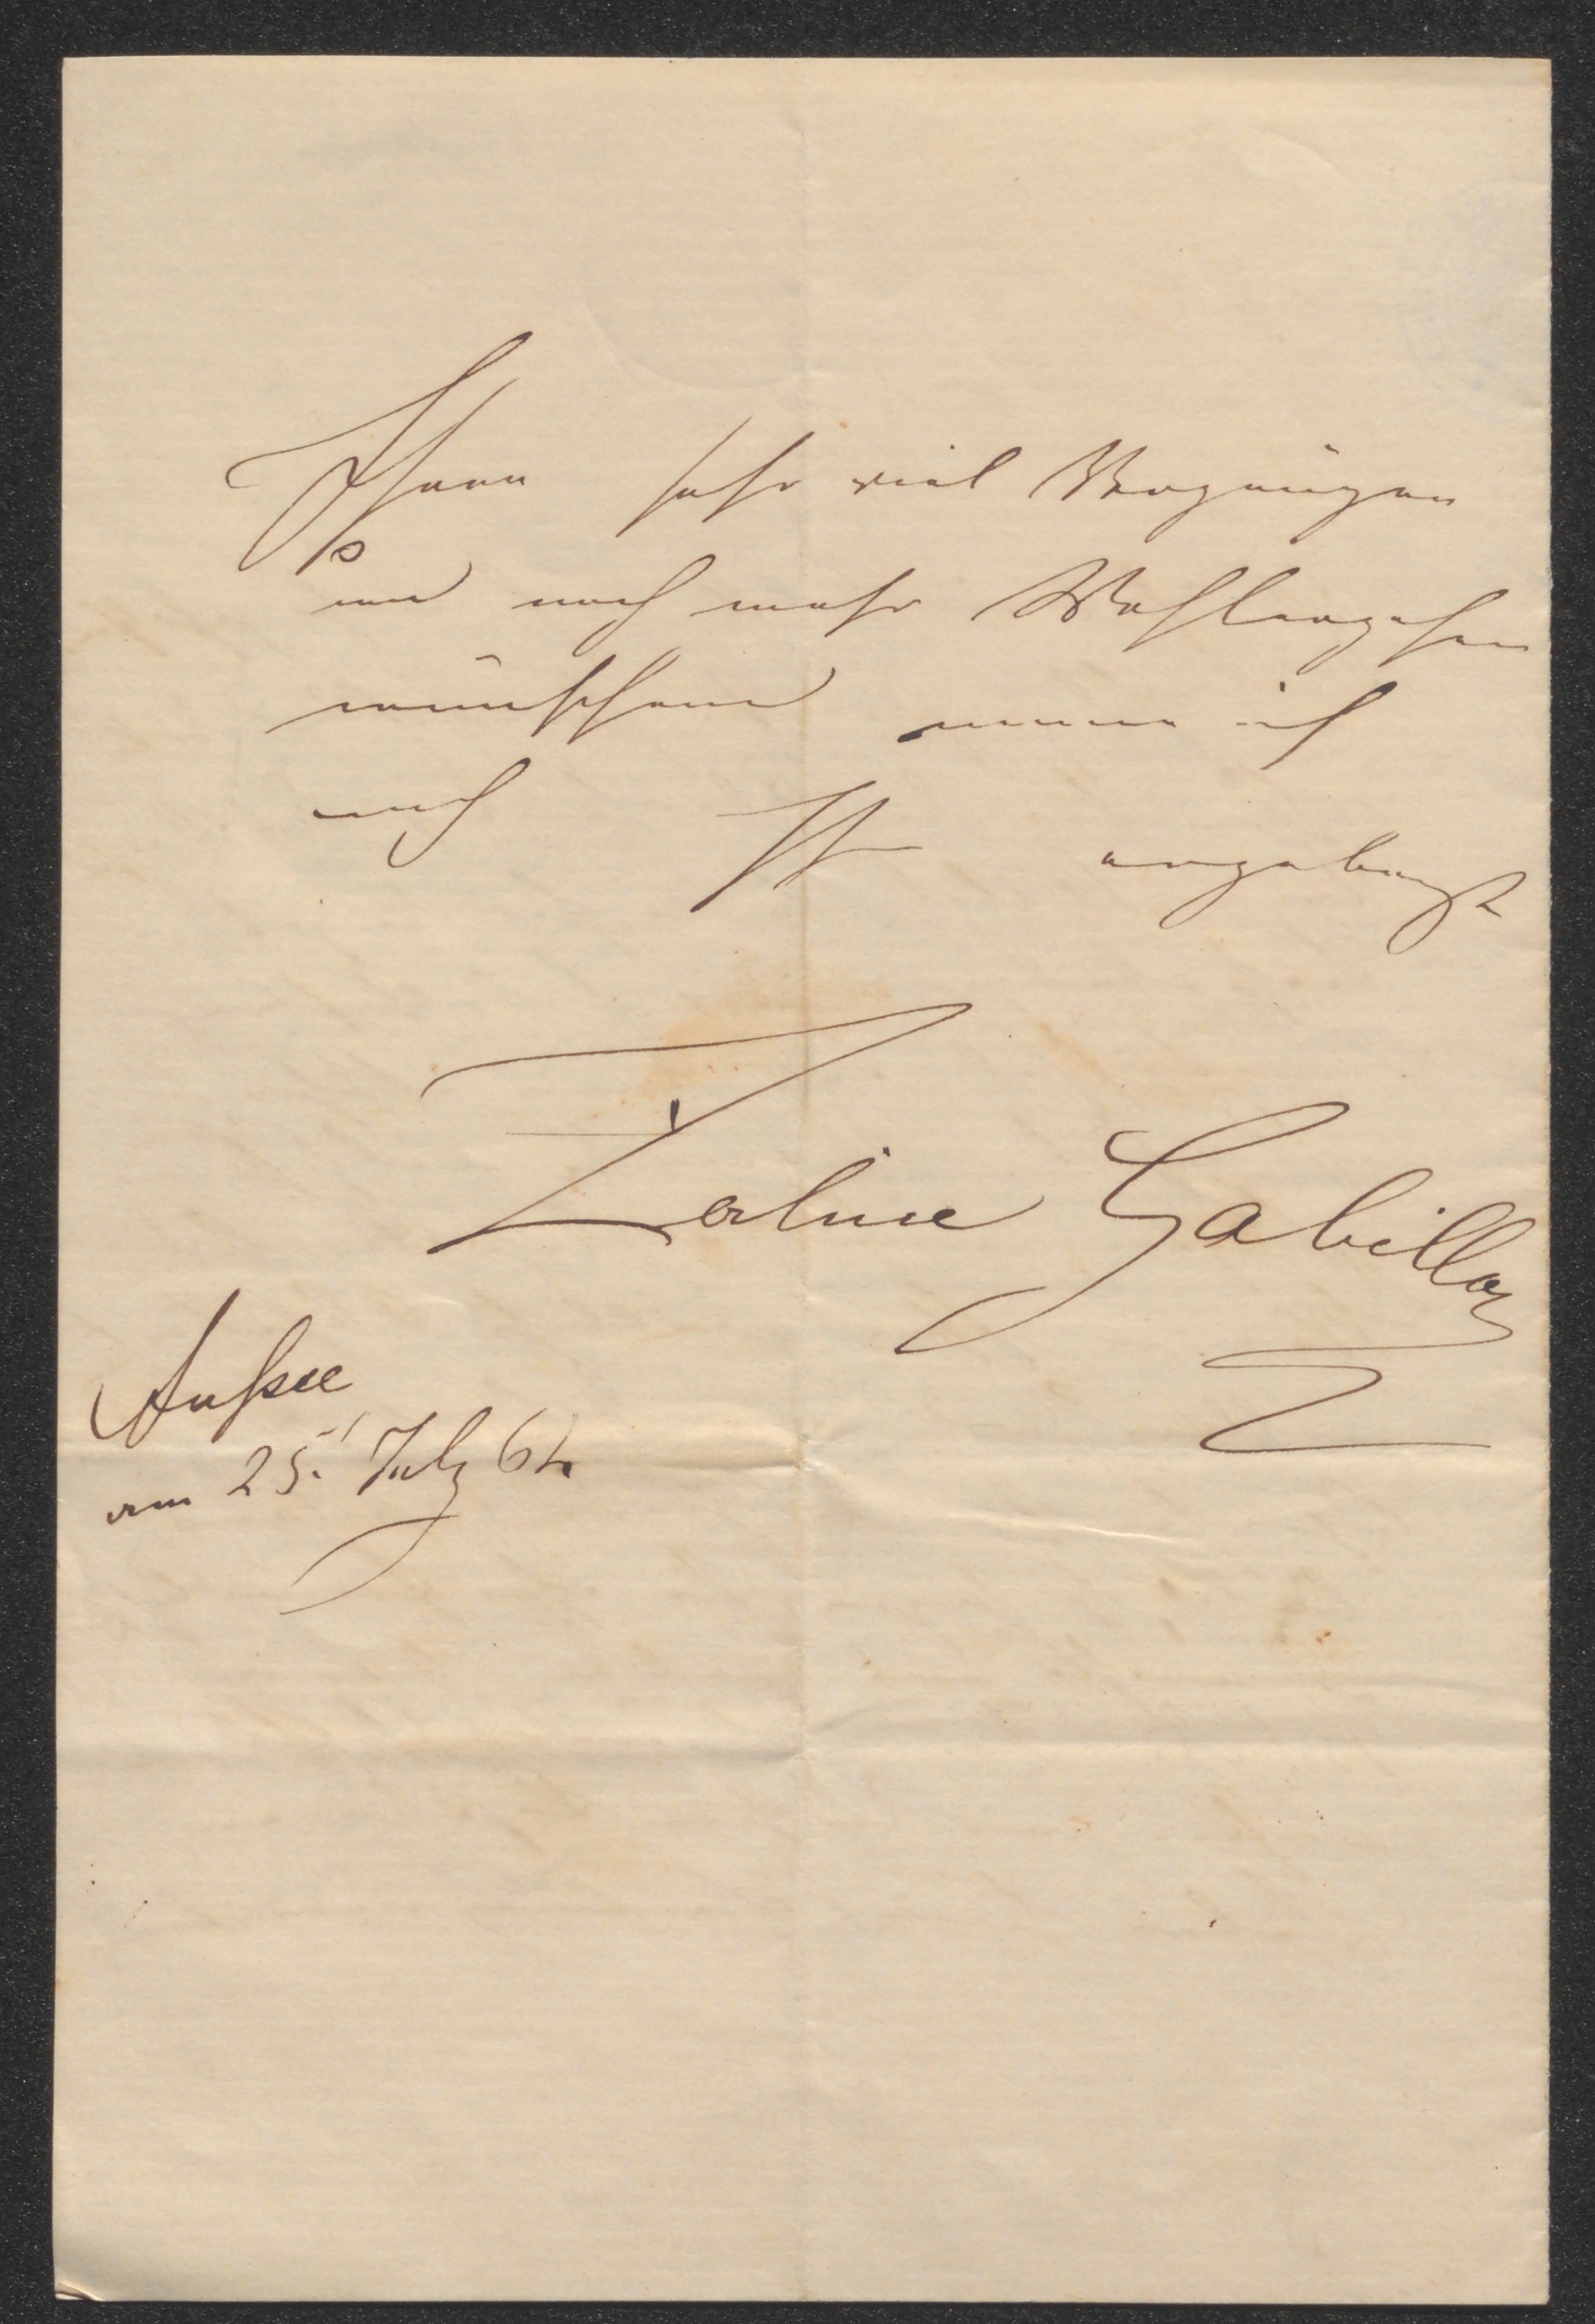 Ihnen sehr viel Vergnügen
und noch mehr Wohlergehen
wünschend nenne ich
mich Ihre ergebenste
Zerline Gabillon
Aussee
am 25. July 64.